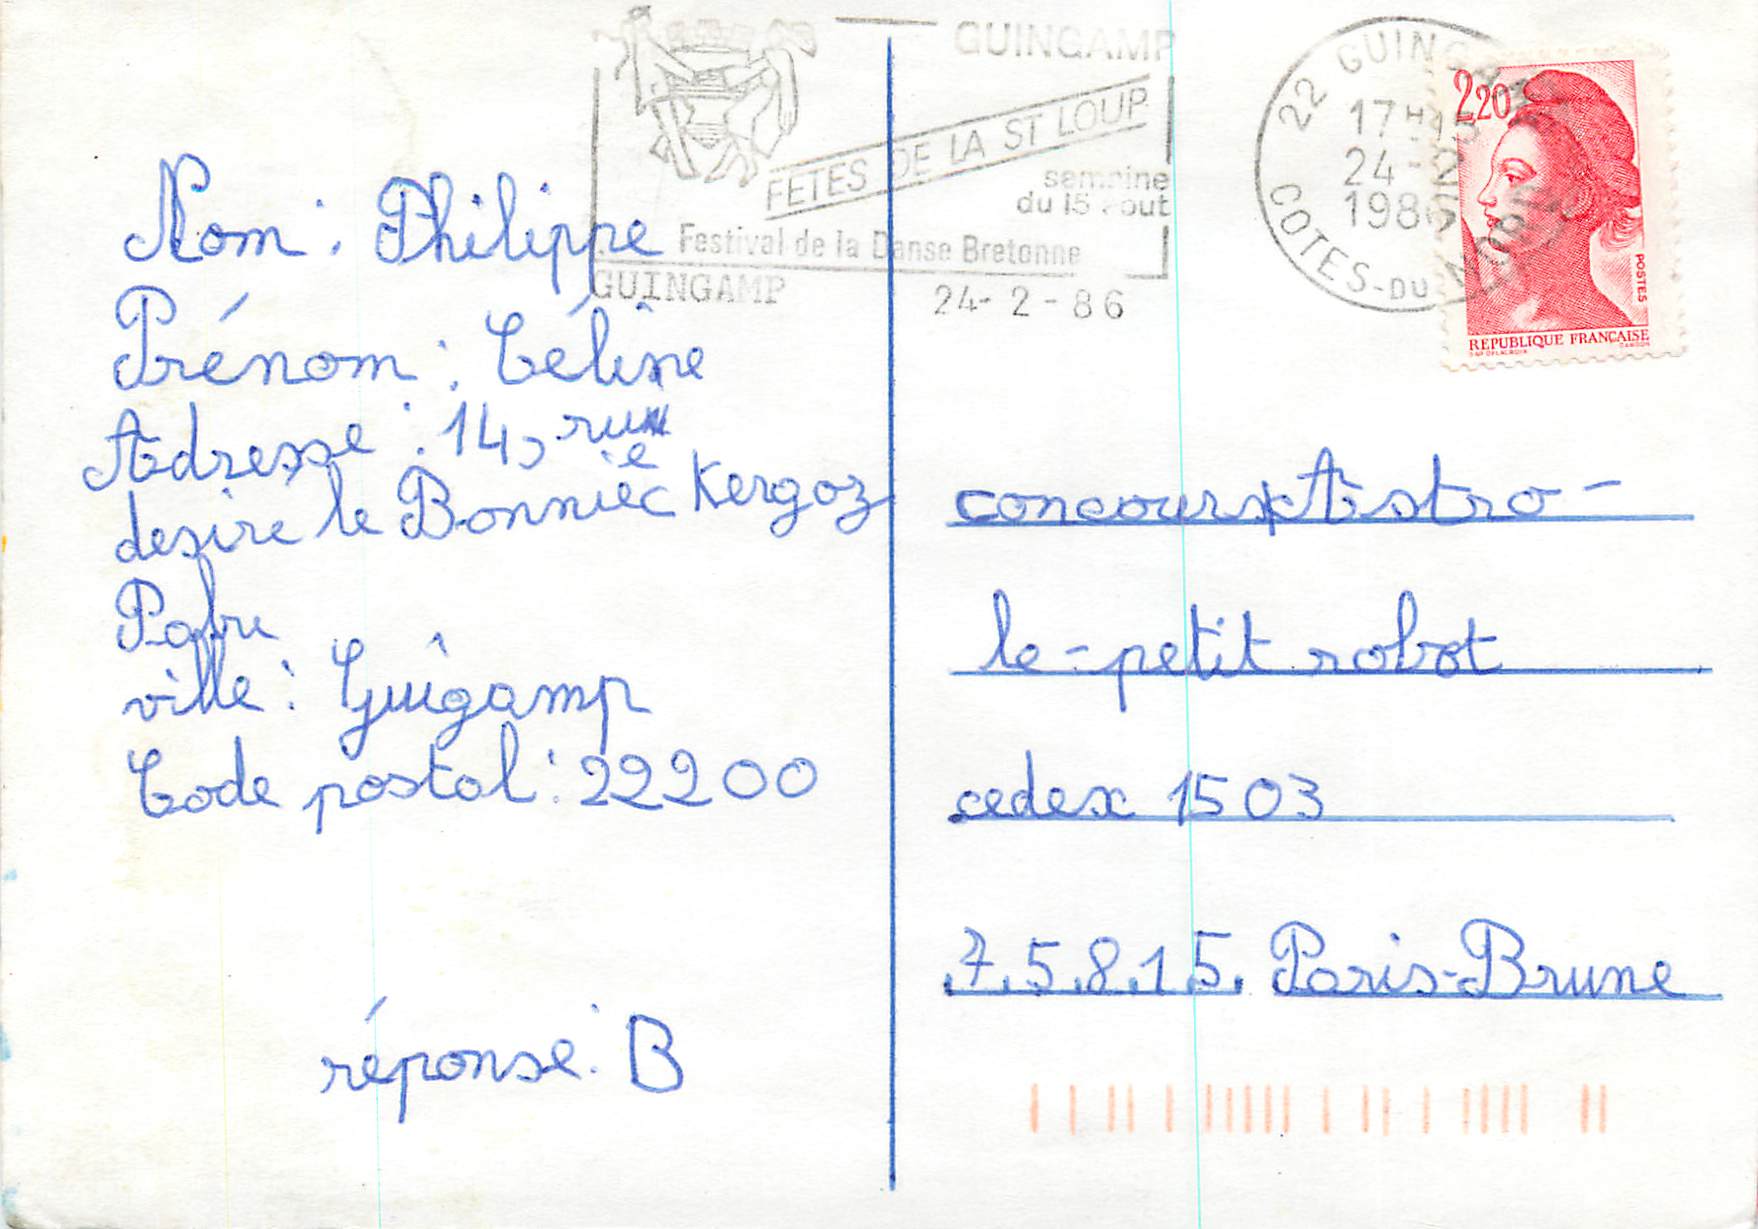 GUINGAMP
FETES DE LA ST LOUP
semaine
du 15 aout
Festival de la Danse Bretonne
GUINGAMP 24-2-86
22 GUINGAMP
17H15
24-2
1986
COTES-DU-NORD
2,20
POSTES
REPUBLIQUE FRANÇAISE
Nom : Philippe
Prénom : Céline
Adresse : 14, rue
desire le Bonniec Kergoz
Pabu
ville : Guigamp
Code postal : 22200
réponse : B
concours Astro-
le-petit robot
cedex 1503
7.5.8.1.5. Paris-Brune